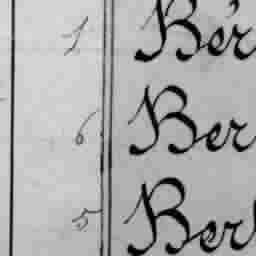 1 Bér
6 Ber
5 Ber